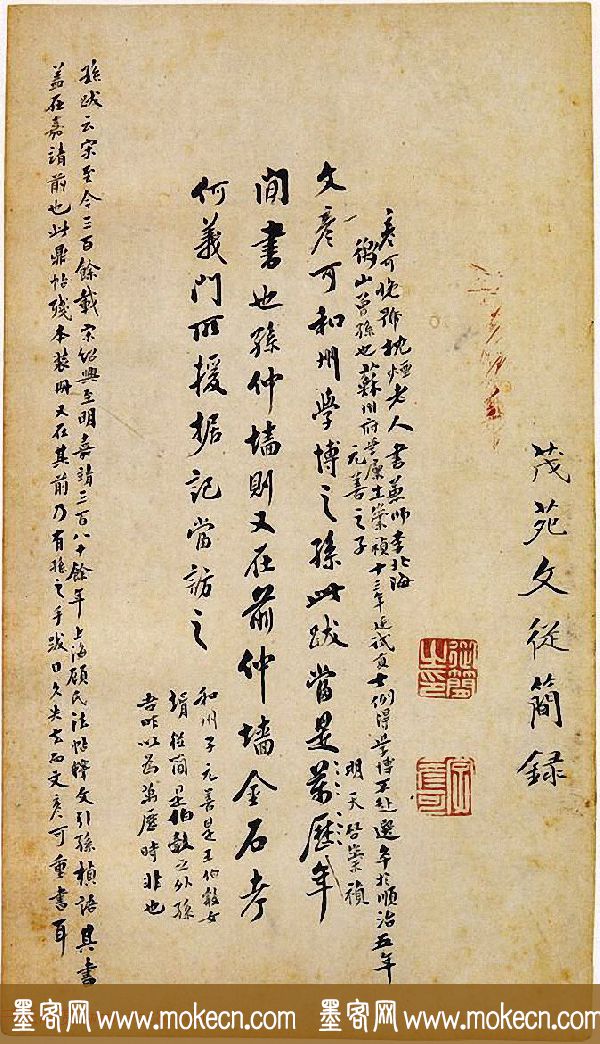 茂苑文從簡錄
從簡之印
彥可晚號枕煙老人書兼師李北海
衡山曾孫也蘇州府學廩生崇禎十三年廷試貢士例得學博不赴選卒於順治五年
元善之子
文彥可和州學博之孫此跋當是萬歷年
明天啓崇禎
間書也孫仲墻則又在前仲墻金石考
何義門所援據記當訪之
和州子元善是王伯穀女
壻從簡是伯穀之外孫
吾昨以為萬歷時非也
孫跋云宋至今三百餘載宋紹興至明嘉靖三百八十餘年上海顧氏法帖釋文引孫楨語其書
蓋在嘉靖前也此鼎帖殘本裝冊又在其前乃有孫之手跋日久失去而文彥可重書耳
墨客网 www.mokecn.com 墨客网 www.mokecn.com